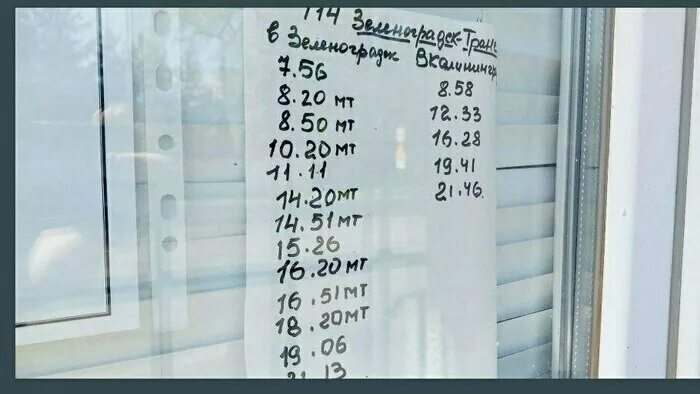 114 Зеленоградск-Транзит
в Зеленоградск
7.56
8.20 мт
8.50 мт
10.20 мт
11.11
14.20 мт
14.51 мт
15.26
16.20 мт
16.51 мт
18.20 мт
19.06
21.13
В Калинингр
8.58
12.33
16.28
19.41
21.46